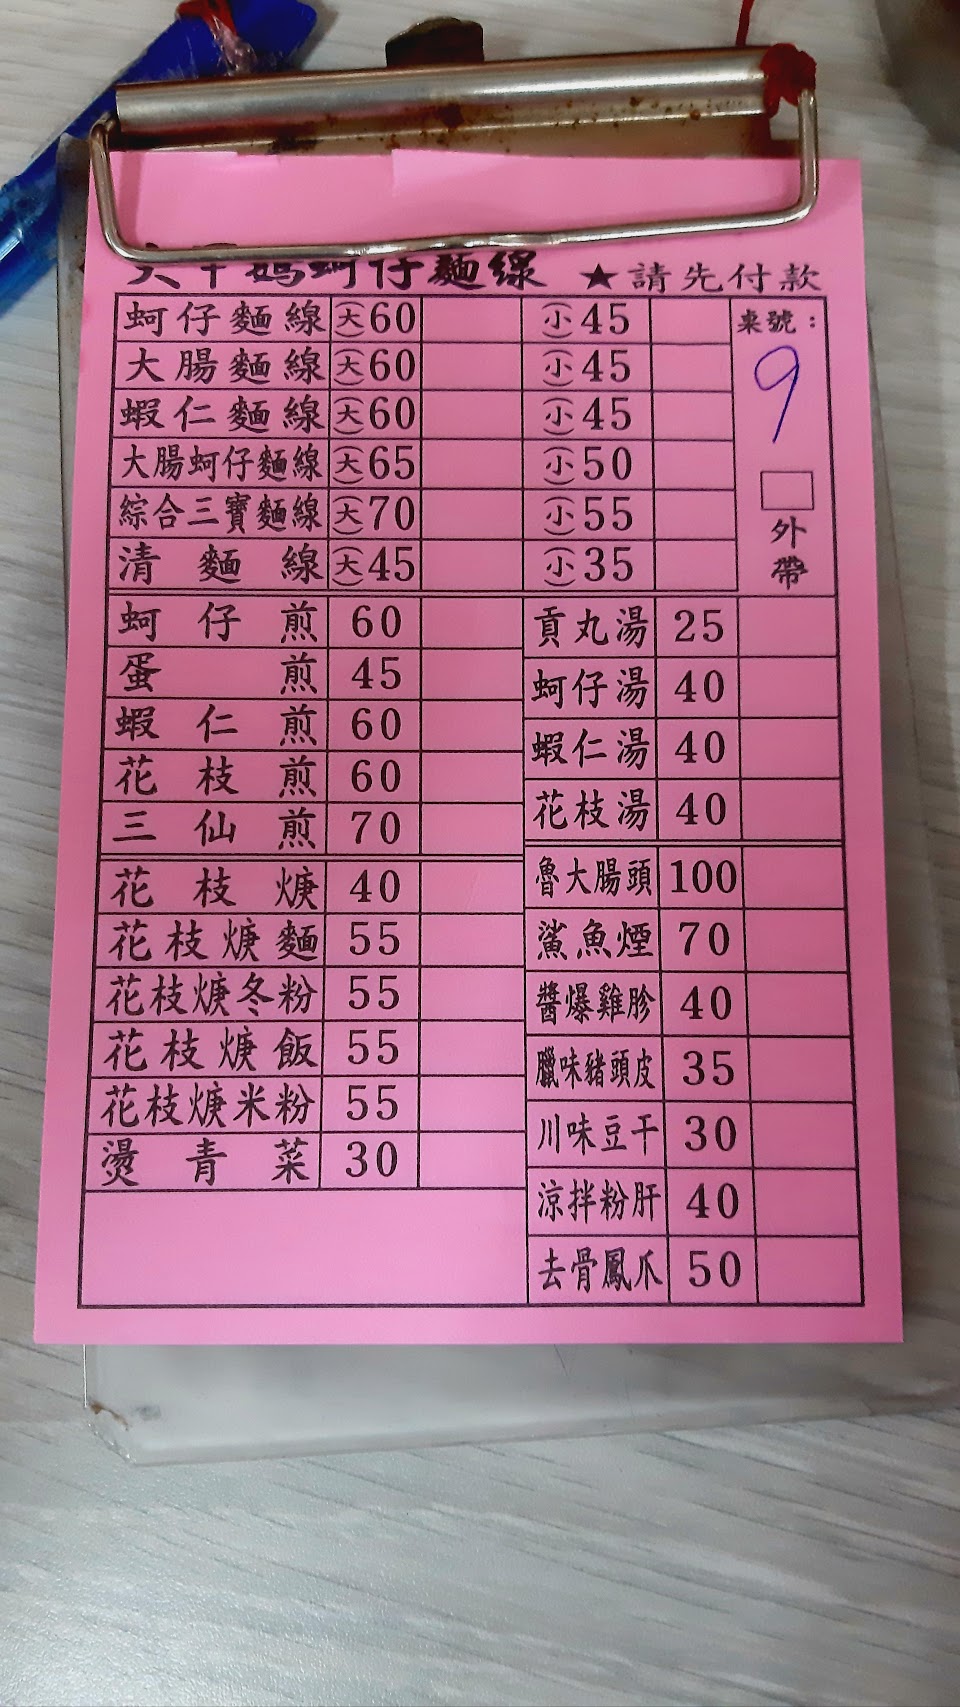 大甲媽蚵仔麵線 ★請先付款
蚵仔麵線 (大)60 (小)45
大腸麵線 (大)60 (小)45
蝦仁麵線 (大)60 (小)45
大腸蚵仔麵線 (大)65 (小)50
綜合三寶麵線 (大)70 (小)55
清麵線 (大)45 (小)35
桌號：
9
外帶
蚵仔煎 60
蛋煎 45
蝦仁煎 60
花枝煎 60
三仙煎 70
花枝焿 40
花枝焿麵 55
花枝焿冬粉 55
花枝焿飯 55
花枝焿米粉 55
燙青菜 30
貢丸湯 25
蚵仔湯 40
蝦仁湯 40
花枝湯 40
魯大腸頭 100
鯊魚煙 70
醬爆雞胗 40
臘味豬頭皮 35
川味豆干 30
涼拌粉肝 40
去骨鳳爪 50